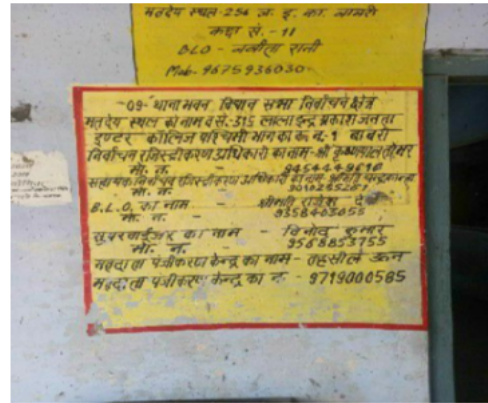 मतदेय स्थल-254 ज. इ. का. जामरी
कक्ष सं. - 11
BLO - बबीता रानी
Mob- 9675936030-
-09- थाना भवन विधान सभा निर्वाचन क्षेत्र
मतदेय स्थल का नाम व सं.-315 लाला इन्द्र प्रकाश जनता
इण्टर कॉलिज पश्चिमी भाग का क.न.-1 बाबरी
निर्वाचन रजिस्ट्रीकरण अधिकारी का नाम-श्री कृष्णपाल तोमर
मो. न. - 9454449618
सहायक निर्वाचन रजिस्ट्रीकरण अधिकारी का नाम-
मो. न.
B.L.O. का नाम - श्रीमति राजेश दे
मो. न. - 9358403055
सुपरवाईजर का नाम - विनोद कुमार
मो. न. - 9568853755
मतदाता पंजीकरण केन्द्र का नाम- तहसील ऊन
मतदाता पंजीकरण केन्द्र का न - 9719000585